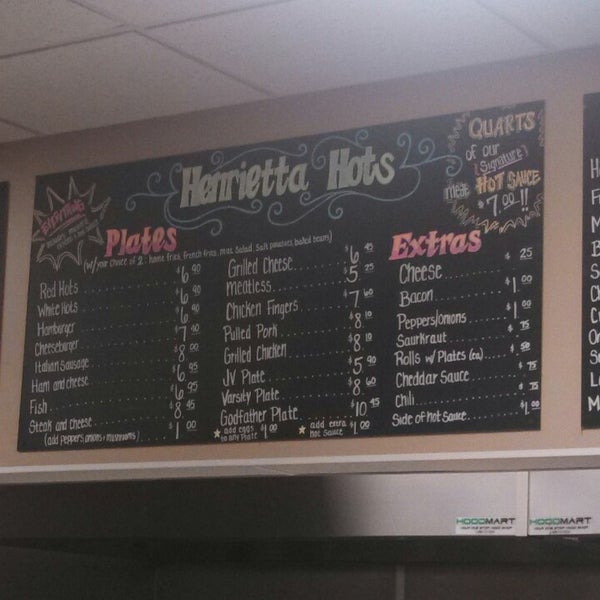 Henrietta Hots
QUARTS
of our
(Signature)
meat HOT SAUCE
$7.00!!
Plates
(w/your choice of 2: home fries, french fries, mac salad, salt potatoes, baked beans)
Red Hots $6.90
White Hots $6.90
Hamburger $6.90
Cheeseburger $7.40
Italian Sausage $8.00
Ham and cheese $6.95
Fish $6.95
Steak and cheese $8.45
(add peppers, onions + mushrooms) $1.00
Grilled Cheese $6.45
meatless $5.25
Chicken Fingers $7.60
Pulled Pork $8.10
Grilled Chicken $8.10
JV Plate $5.90
Varsity Plate $8.60
Godfather Plate $10.45
★ add eggs to any Plate $1.00
★ add extra Hot Sauce $1.00
Extras
Cheese $.25
Bacon $1.00
Peppers/onions $1.00
Saurkraut $.75
Rolls w/ Plates (ea.) $.50
Cheddar Sauce $.75
Chili $.75
Side of hot Sauce $1.00
HOODMART
HOODMART